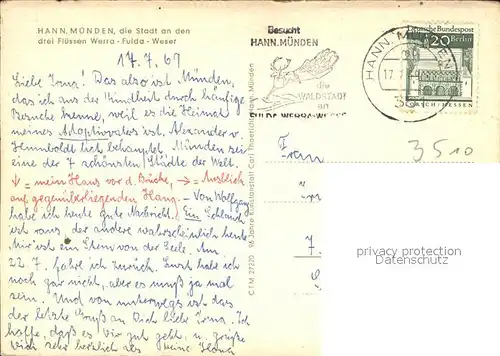 HANN. MÜNDEN, die Stadt an den
drei Flüssen Werra - Fulda - Weser
17.7.67
Liebe Irma! Das also ist Münden,
das ich aus der Kindheit durch häufige
Besuche kenne, weil es die Heimat
meines Adoptivvaters ist. Alexander v.
Humboldt lich behauptet, Münden sei
eine der 7 schönsten Städte der Welt.
↓ = mein Haus vor d. Brücke, → = Ausblick
auf gegenüberliegenden Hang. - Von Wolfgang
habe ich heute gute Nachricht. Ein Schlauch
ist raus, der andere wahrscheinlich heute.
Mir ist ein Stein von der Seele. Am
22.7. fahre ich zurück. Lust habe ich
noch gar nicht, aber es muß ja mal
sein. Und von unterwegs ist das
der letzte Gruß an Dich liebe Irma. Ich
hoffe, daß es Dir gut geht u. grüße
Dich sehr herzlich als Deine
C.T.M. 27220 96 Jahre Ansichtskarten Carl Münden
Besucht
HANN. MÜNDEN
die
WALDSTADT
an
FULDA-WERRA-WESER
HANN. MÜNDEN
17.7.
35
Deutsche Bundespost
20 Berlin
LORSCH/HESSEN
3510
Frau
7
privacy protection
Datenschutz